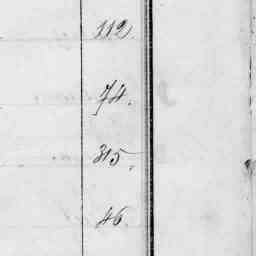 112.
74.
315.
46.